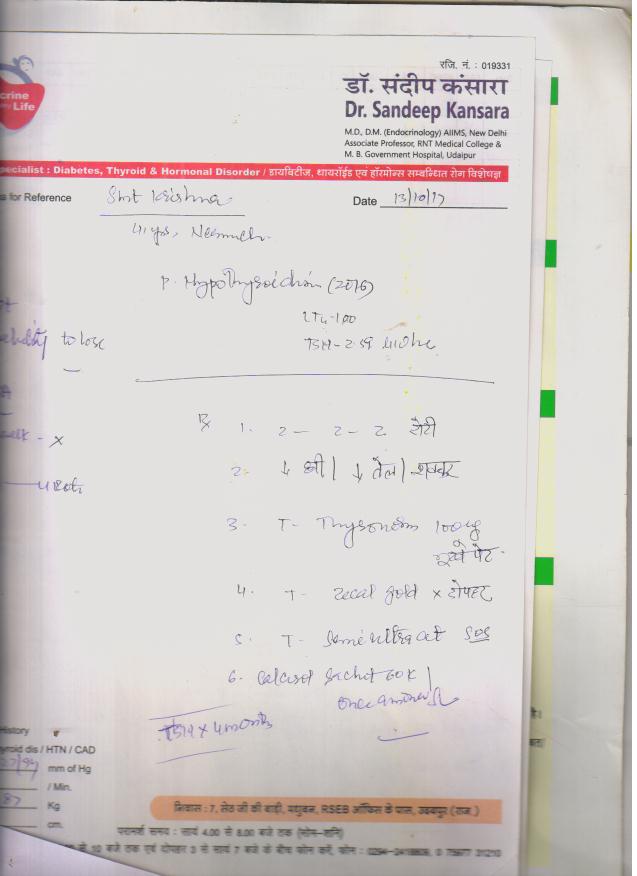 रजि. नं. : 019331
डॉ. संदीप कंसारा
Dr. Sandeep Kansara
M.D., D.M. (Endocrinology) AIIMS, New Delhi
Associate Professor, RNT Medical College &
M. B. Government Hospital, Udaipur
crine
Life
pecialist : Diabetes, Thyroid & Hormonal Disorder / डायबिटीज, थायरॉईड एवं हॉरमोन्स सम्बन्धित रोग विशेषज्ञ
for Reference Smt Krishna Date 13/10/17
41 yrs, Neemuch
Hypothyroidism (2016)
LT4-100
to lose TSH - 2.59
Rx 1. 2 - 2 - 2 रोटी
2. ↓ घी / ↓ तेल / शक्कर
3. T- Thyronorm 100ug
भूखे पेट
4. T- gold x दोपहर
5. T- SOS
6. Calcirol Sachet 60K /
once a month
TSH x 4 months
History
yroid dis / HTN / CAD
mm of Hg
/ Min.
87 Kg
cm.
निवास : 7, सेठ जी की बाड़ी, मधुबन, RSEB ऑफिस के पास, उदयपुर (राज.)
परामर्श समय : सायं 4.00 से 8.00 बजे तक (सोम-शनि)
10 बजे तक एवं दोपहर 3 से सायं 7 बजे के बीच फोन करें, फोन :